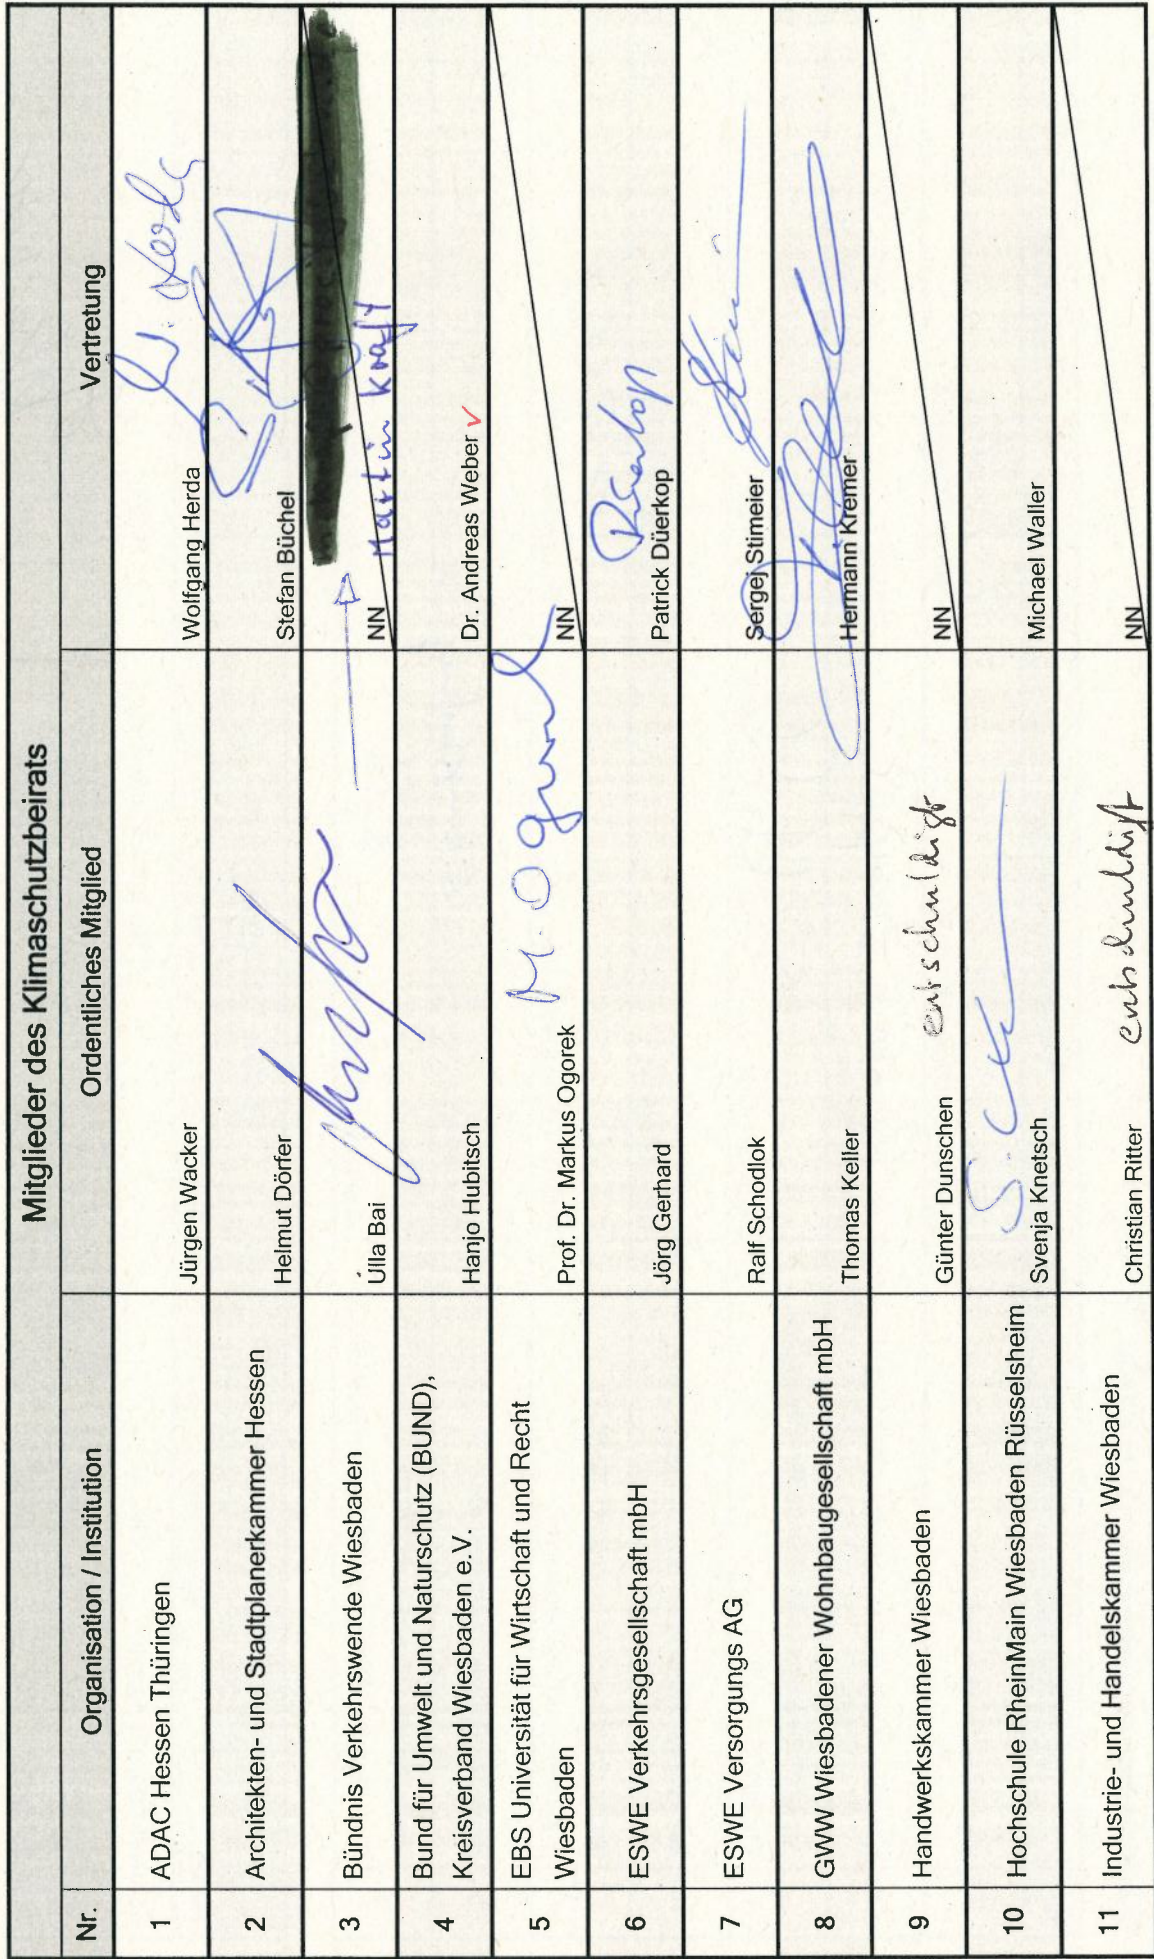 Mitglieder des Klimaschutzbeirats
Nr. Organisation / Institution Ordentliches Mitglied Vertretung
1 ADAC Hessen Thüringen Jürgen Wacker Wolfgang Herda W. Herda
2 Architekten- und Stadtplanerkammer Hessen Helmut Dörfer Stefan Büchel
3 Bündnis Verkehrswende Wiesbaden Ulla Bai NN Martin Kraft
4 Bund für Umwelt und Naturschutz (BUND),
Kreisverband Wiesbaden e.V. Hanjo Hubitsch Dr. Andreas Weber ✓
5 EBS Universität für Wirtschaft und Recht
Wiesbaden Prof. Dr. Markus Ogorek M. Ogorek NN
6 ESWE Verkehrsgesellschaft mbH Jörg Gerhard Patrick Düerkop Düerkop
7 ESWE Versorgungs AG Ralf Schodlok Sergej Stimeier
8 GWW Wiesbadener Wohnbaugesellschaft mbH Thomas Keller Hermann Kremer
9 Handwerkskammer Wiesbaden Günter Dunschen entschuldigt NN
10 Hochschule RheinMain Wiesbaden Rüsselsheim Svenja Knetsch Michael Waller
11 Industrie- und Handelskammer Wiesbaden Christian Ritter entschuldigt NN